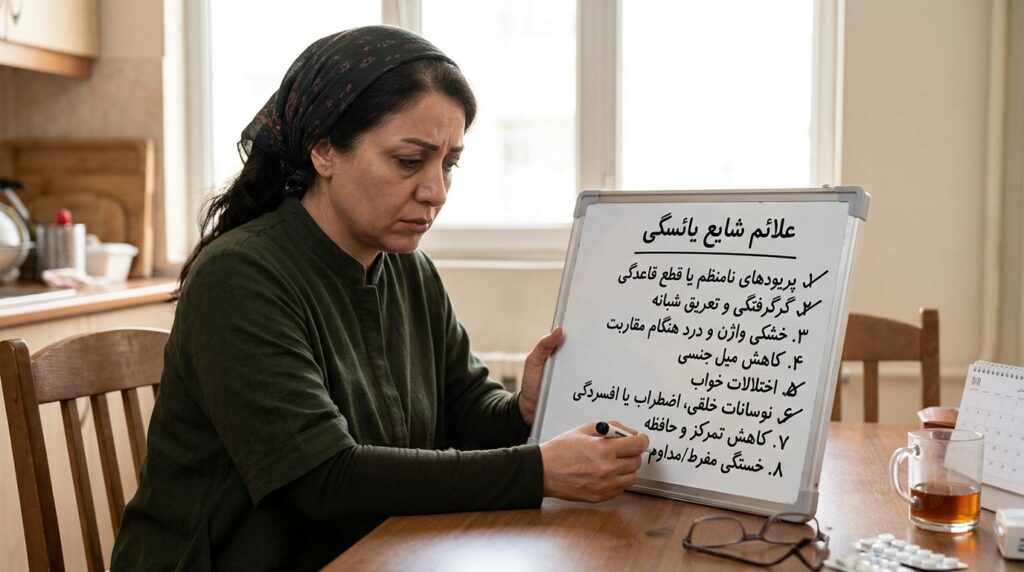 علائم شایع یائسگی
۱. پریودهای نامنظم یا قطع قاعدگی
۲. گرگرفتگی و تعریق شبانه
۳. خشکی واژن و درد هنگام مقاربت
۴. کاهش میل جنسی
۵. اختلالات خواب
۶. نوسانات خلقی، اضطراب یا افسردگی
۷. کاهش تمرکز و حافظه
۸. خستگی مفرط/مداوم